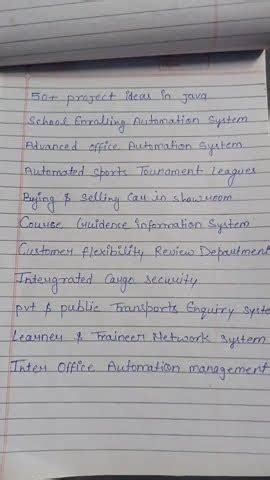 50+ project ideas in java
School Enrolling Automation System
Advanced office Automation System
Automated Sports Tournament Leagues
Buying & Selling Car in showroom
Course Guidence Information System
Customer flexibility Review Department
Intergrated Cargo security
pvt & public Transports Enquiry syste
Learner & Traineer Network System
Inter Office Automation management